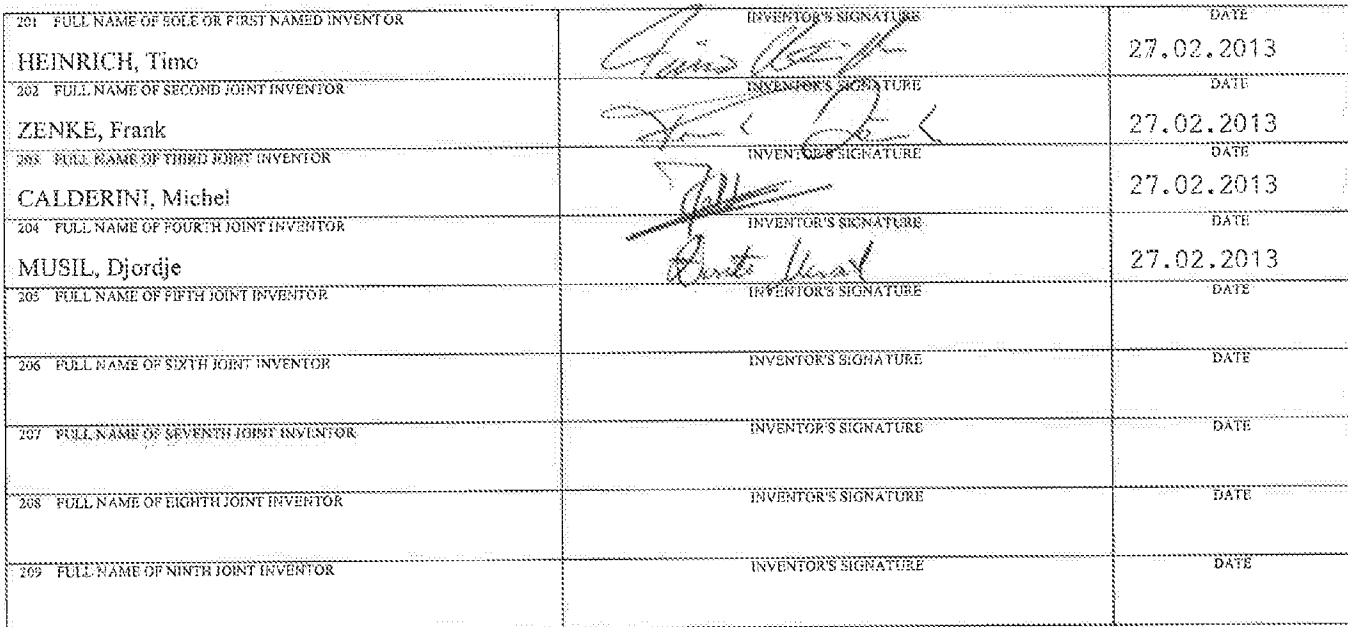 201 FULL NAME OF SOLE OR FIRST NAMED INVENTOR INVENTOR'S SIGNATURE DATE
HEINRICH, Timo 27.02.2013
202 FULL NAME OF SECOND JOINT INVENTOR INVENTOR'S SIGNATURE DATE
ZENKE, Frank 27.02.2013
203 FULL NAME OF THIRD JOINT INVENTOR INVENTOR'S SIGNATURE DATE
CALDERINI, Michel 27.02.2013
204 FULL NAME OF FOURTH JOINT INVENTOR INVENTOR'S SIGNATURE DATE
MUSIL, Djordje 27.02.2013
205 FULL NAME OF FIFTH JOINT INVENTOR INVENTOR'S SIGNATURE DATE
206 FULL NAME OF SIXTH JOINT INVENTOR INVENTOR'S SIGNATURE DATE
207 FULL NAME OF SEVENTH JOINT INVENTOR INVENTOR'S SIGNATURE DATE
208 FULL NAME OF EIGHTH JOINT INVENTOR INVENTOR'S SIGNATURE DATE
209 FULL NAME OF NINTH JOINT INVENTOR INVENTOR'S SIGNATURE DATE